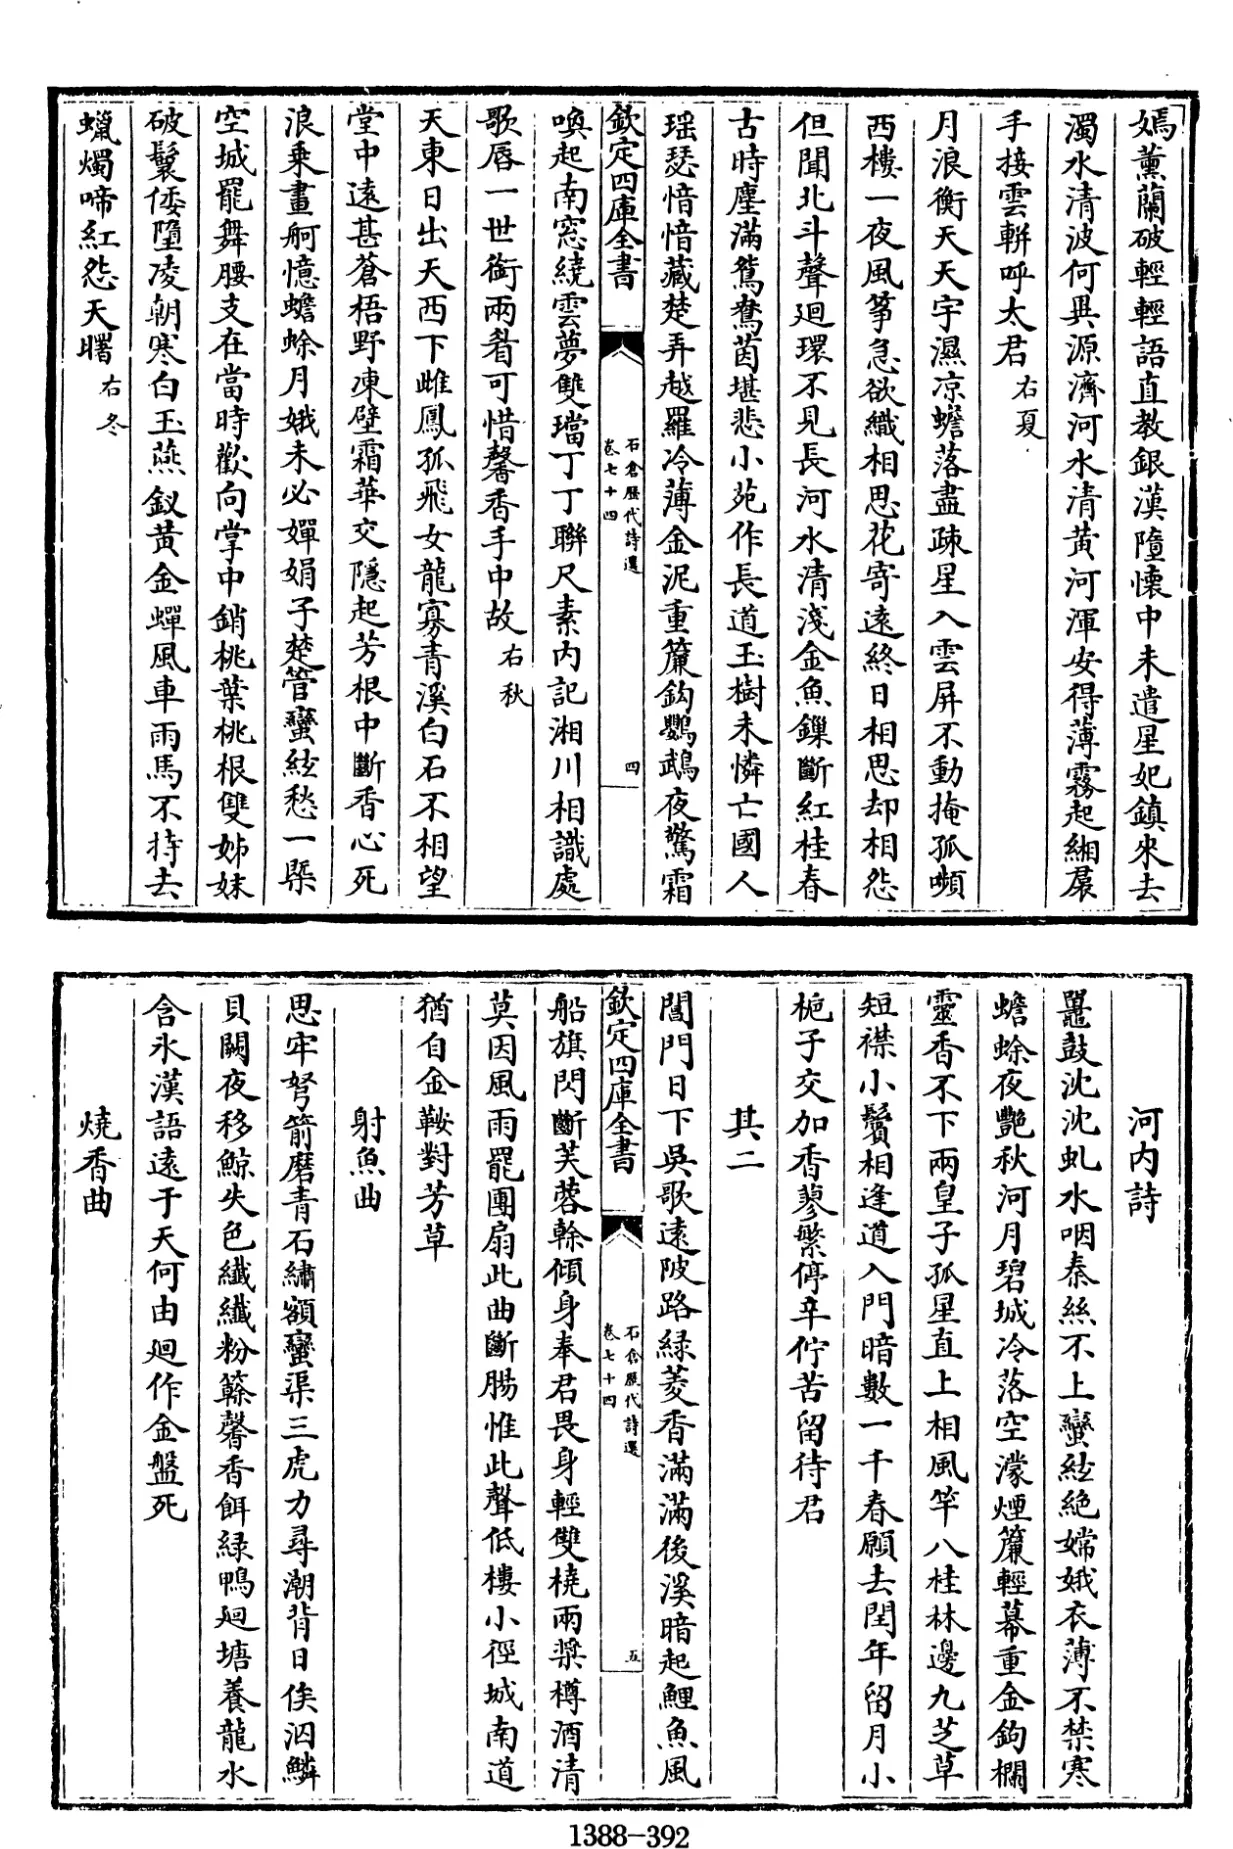 嫣薰蘭破輕輕語直教銀漢墮懷中未遣星妃鎮來去
濁水清波何異源濟河水清黃河渾安得薄霧起緗裙
手接雲軿呼太君右夏
月浪衡天天宇濕凉蟾落盡疎星入雲屏不動掩孤嚬
西樓一夜風筝急欲織相思花寄遠終日相思却相怨
但聞北斗聲迴環不見長河水清淺金魚鏁斷紅桂春
古時塵滿鴛鴦茵堪悲小苑作長道玉樹未憐亡國人
瑶瑟愔愔藏楚弄越羅冷薄金泥重簾鈎鸚鵡夜驚霜
欽定四庫全書
石倉歷代詩選
卷七十四
四
喚起南窓繞雲夢雙璫丁丁聯尺素内記湘川相識處
歌唇一世銜兩看可惜馨香手中故右秋
天東日出天西下雌鳳孤飛女龍寡青溪白石不相望
堂中遠甚蒼梧野凍壁霜華交隱起芳根中斷香心死
浪乗畫舸憶蟾蜍月娥未必嬋娟子楚管蠻絃愁一槩
空城罷舞腰支在當時歡向掌中銷桃葉桃根雙姊妹
破鬟倭墮凌朝寒白玉燕釵黄金蟬風車雨馬不持去
蠟燭啼紅怨天曙右冬
河内詩
鼉鼓沈沈虬水咽秦絲不上蠻絃絶嫦娥衣薄不禁寒
蟾蜍夜艷秋河月碧城冷落空濛煙簾輕幕重金鉤欄
靈香不下兩皇子孤星直上相風竿八桂林邊九芝草
短襟小鬢相逢道入門暗數一千春願去閏年留月小
梔子交加香蓼繁停辛佇苦留待君
其二
閶門日下吳歌遠陂路緑菱香滿滿後溪暗起鯉魚風
欽定四庫全書
石倉歷代詩選
卷七十四
五
船旗閃斷芙蓉榦傾身奉君畏身輕雙橈兩槳樽酒清
莫因風雨罷團扇此曲斷腸惟此聲低樓小徑城南道
猶自金鞍對芳草
射魚曲
思牢弩箭磨青石繡額蠻渠三虎力尋潮背日俟泅鱗
貝闕夜移鯨失色纖纖粉簳馨香餌緑鴨迴塘養龍水
含氷漢語遠于天何由廻作金盤死
燒香曲
1388-392